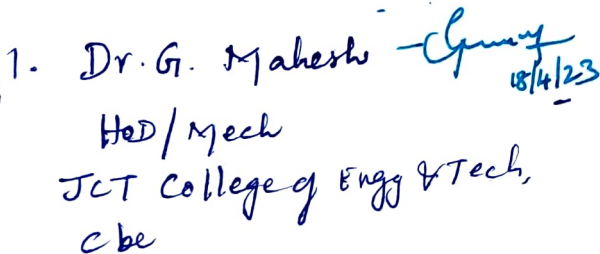 1. Dr. G. Mahesh 18/4/23
HOD/Mech
JCT College of Engg & Tech,
Cbe